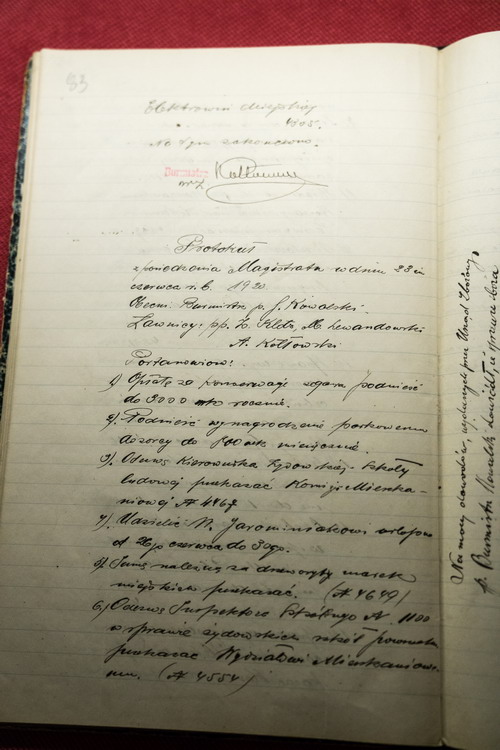 83
Elektrowni miejskiej
1805.
Na tym zakończono.
Burmistrz
wz
Protokuł
z posiedzenia Magistratu w dniu 22 im
czerwca r.b. 1920
Obecni: Burmistrz p. J. Kowalski
Ławnicy: pp. Lewandowski
A. Kołtowski
Postanowiono:
1) Opłatę za konserwację zegara podnieść
do 3000 mk rocznie.
2) Podnieść wynagrodzenie parkowemu
dozorcy do 800 mk miesięcznie.
3) Odezwę Kierownika Żydowskiej Szkoły
ludowej przekazać Komisji Mieszka-
niowej N 4467
4) Udzielić N. Jarominiakowi urlopu
od 26go czerwca do 30go.
5) Sumę należną za drzeworyty marek
miejskich przekazać. (N 4649)
6) Odezwę Inspektora Szkolnego N. 1100
w sprawie żydowskich szkół powszech
przekazać Wydziałowi Mieszkaniowe-
mu. (N 4554)
Na mocy dowodów, wydanych przez Urząd Zbożowy,
p. Burmistrz Kowalski